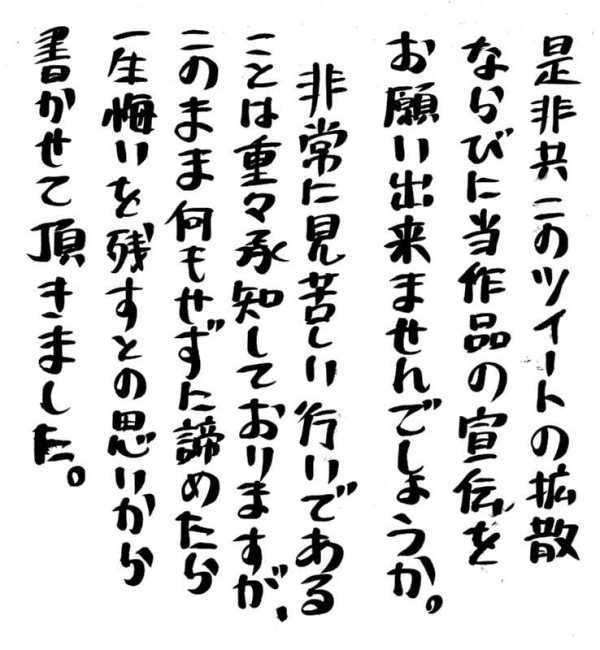 是非共このツイートの拡散
ならびに当作品の宣伝を
お願い出来ませんでしょうか。
非常に見苦しい行いである
ことは重々承知しておりますが、
このまま何もせずに諦めたら
一生悔いを残すとの思いから
書かせて頂きました。